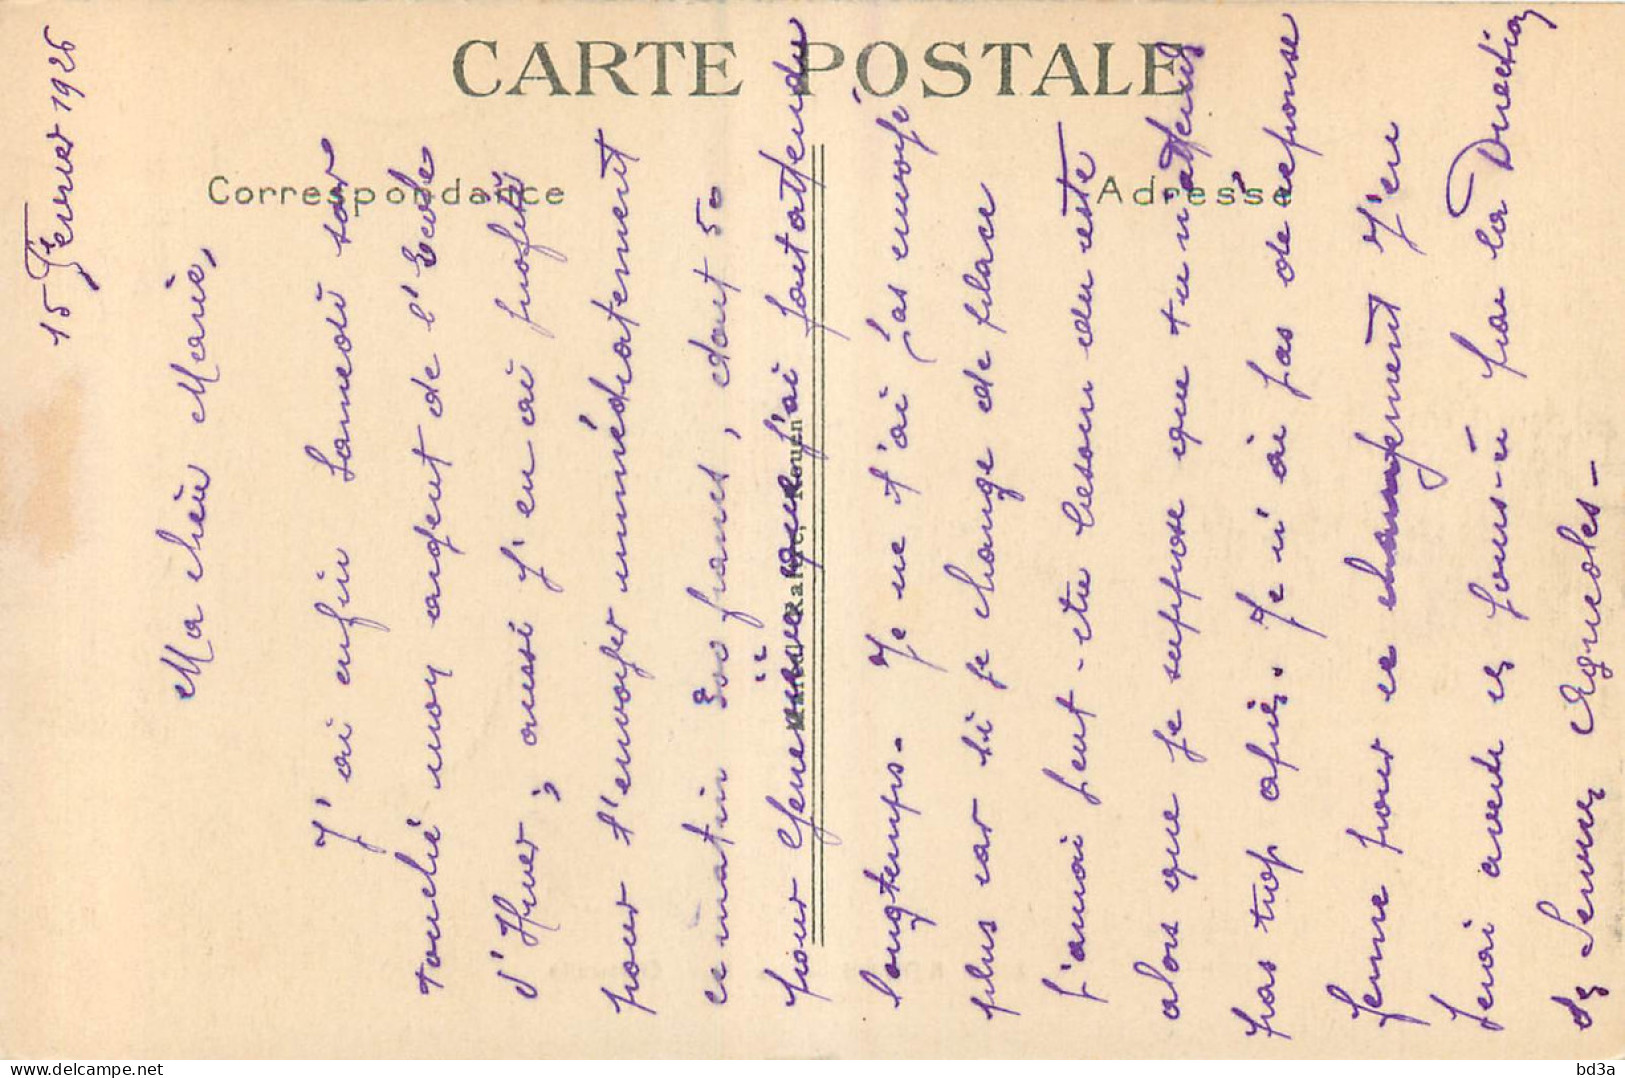 CARTE POSTALE
Correspondance
Adresse
15 Février 1926
Ma chère Marie,
J'ai enfin samedi soir
touché mon argent de l'Ecole
d'Hiver ; aussi j'en ai profité
pour t'envoyer immédiatement
ce matin 300 francs, dont 50
pour Geneviève que j'ai fait attendre
longtemps. Je ne t'ai pas envoyé
plus car si je change de place
j'aurai peut-être besoin du reste
alors que je suppose que tu n'attends
pas trop après. Je n'ai pas de réponse
ferme pour ce changement J'en
ferai avec
par la Direction
des Services Agricoles -
Rouen
bd3a